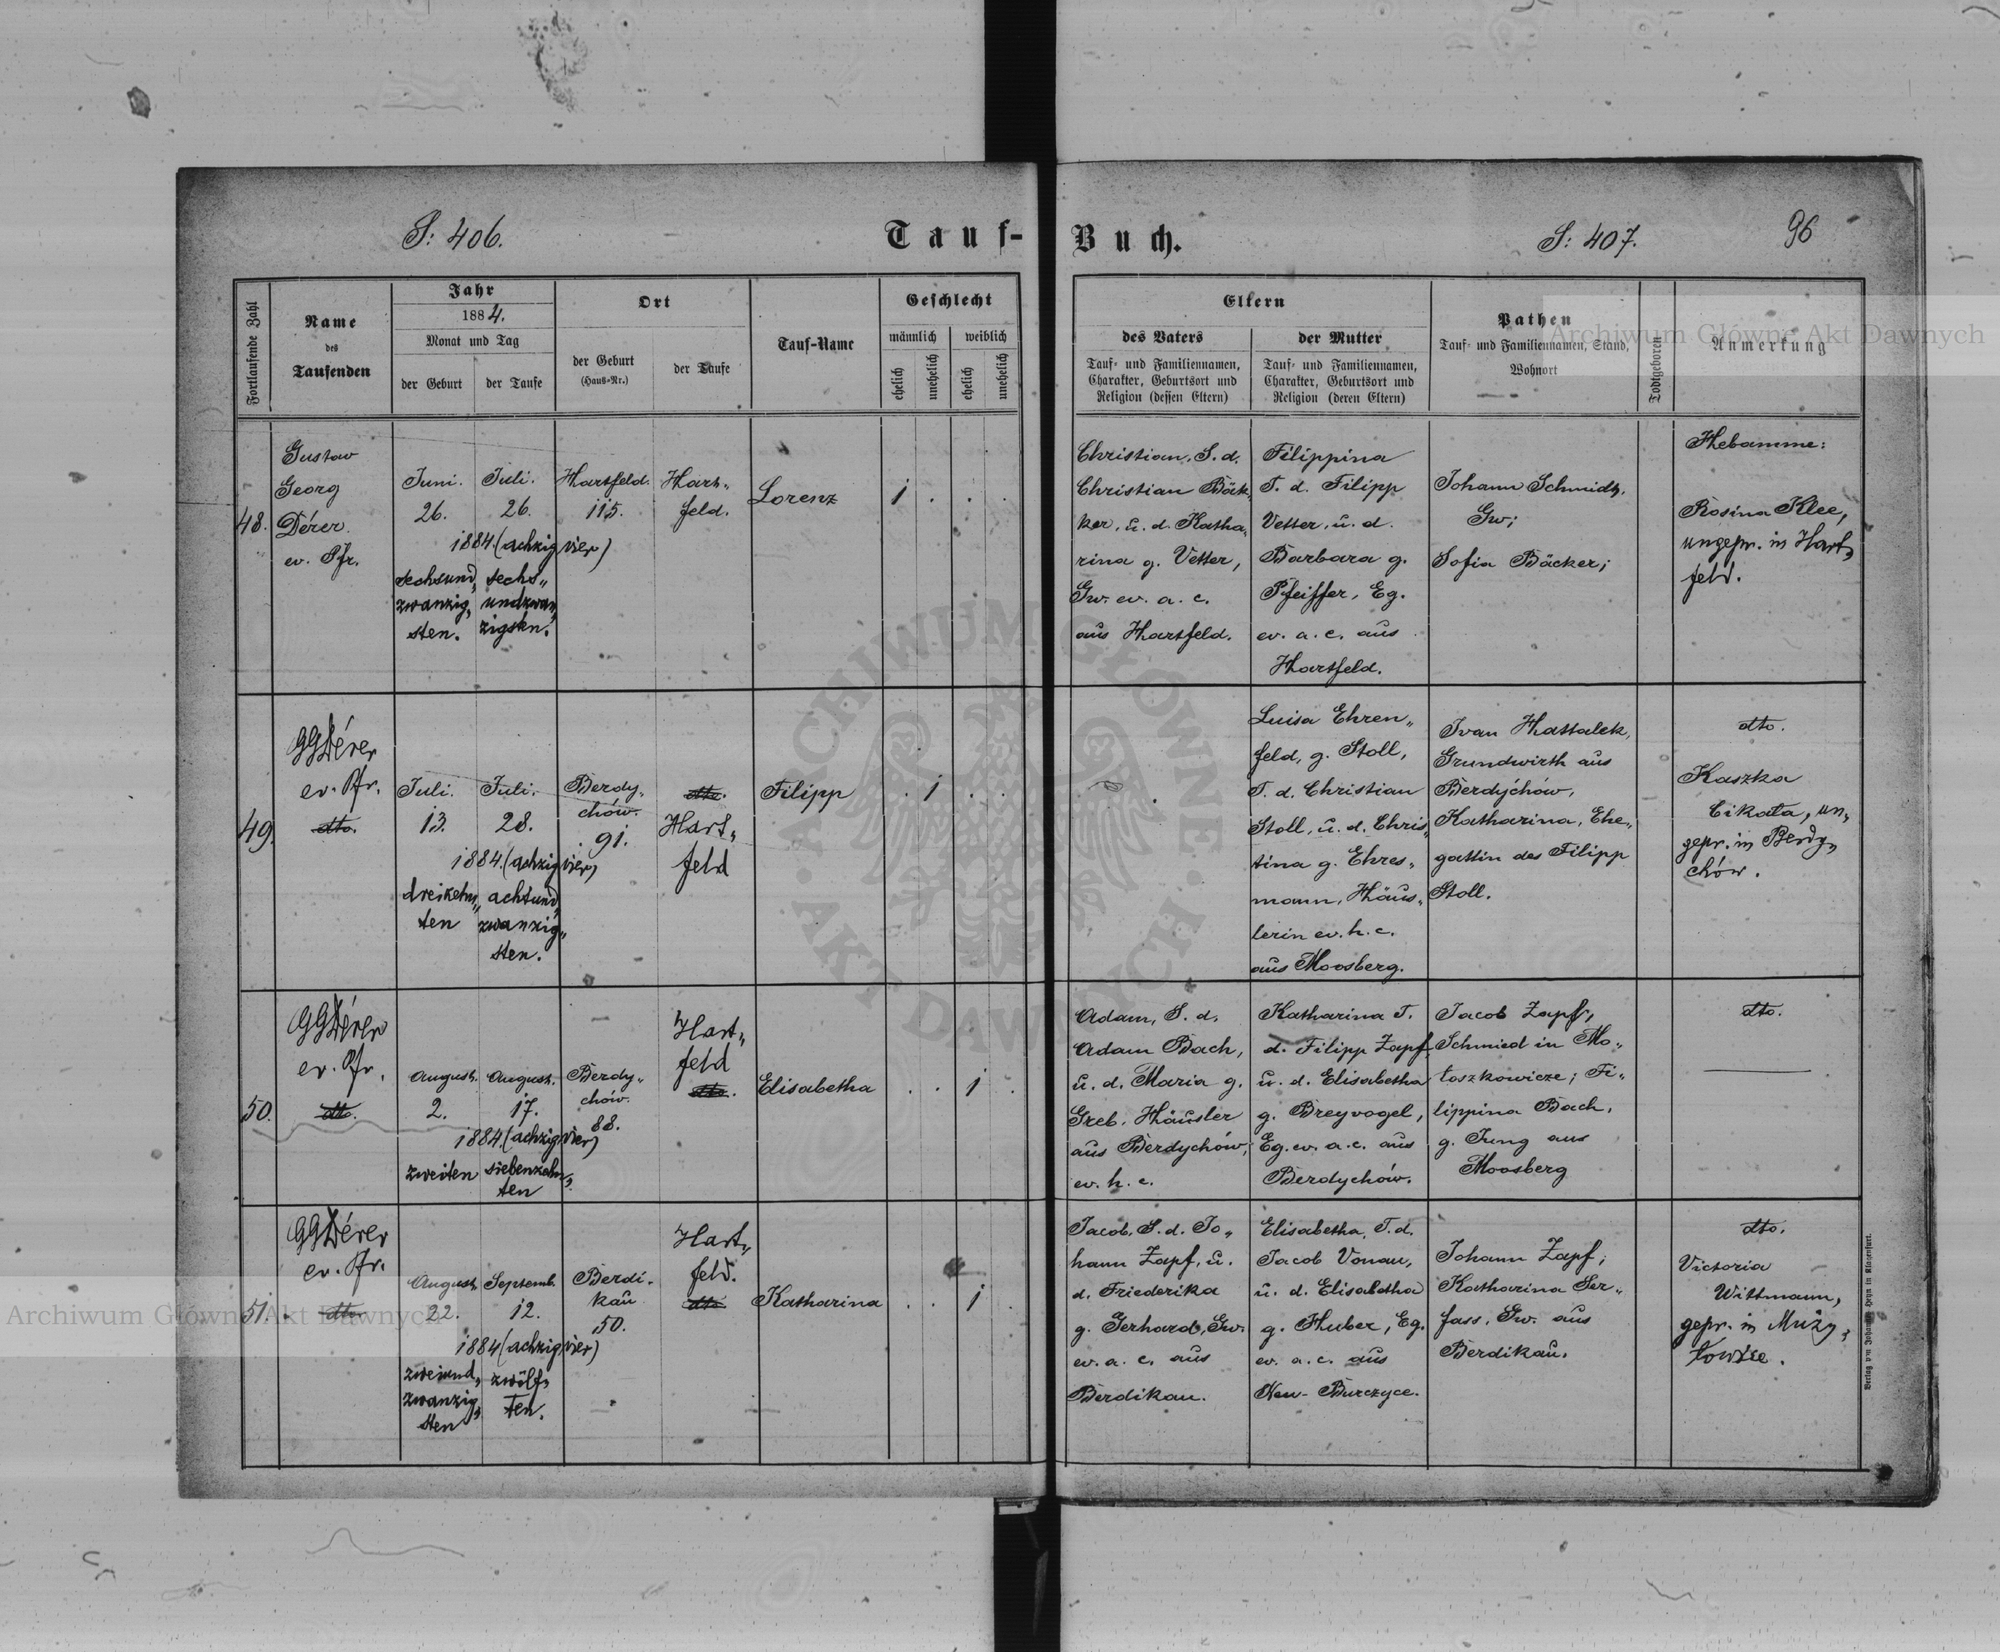 S: 406.
Tauf-
Buch.
S: 407.
96
Fortlaufende Zahl
Name
des
Taufenden
Jahr
1884.
Monat und Tag
der Geburt
der Taufe
Ort
der Geburt
(Haus-Nr.)
der Taufe
Tauf-Name
Geschlecht
männlich
weiblich
ehelich
unehelich
ehelich
unehelich
Eltern
des Vaters
Tauf- und Familiennamen,
Charakter, Geburtsort und
Religion (dessen Eltern)
der Mutter
Tauf- und Familiennamen,
Charakter, Geburtsort und
Religion (deren Eltern)
Pathen
Tauf- und Familiennamen, Stand,
Wohnort
Todtgeboren
Anmerkung
48.
Gustav
Georg
Dérer
ev. Pfr.
Juni.
26.
Juli.
26.
1884. (achzig vier)
sechsund„
zwanzig„
sten.
sechs„
undzwan„
zigsten.
Hartfeld.
115.
Hart„
feld.
Lorenz
1 . . .
Christian, S. d.
Christian Bäk„
ker, u. d. Katha„
rina g. Vetter,
Gw. ev. a. c.
aus Hartfeld.
Filippina
T. d. Filipp
Vetter, u. d.
Barbara g.
Pfeiffer, Eg.
ev. a. c. aus
Hartfeld.
Johann Schmidt,
Gw;
Sofia Bäcker;
Hebamme:
Rosina Klee,
ungepr. in Hart„
feld.
49.
GGDérer
ev. Pfr.
dto.
Juli.
13.
Juli.
28.
1884. (achzig vier)
dreizehn„
ten
achtund„
zwanzig„
sten.
Berdy„
chów.
91.
dto.
Hart„
feld
Filipp
. 1 . .
Luisa Ehren„
feld, g. Stoll,
T. d. Christian
Stoll, u. d. Chris„
tina g. Ehres„
mann, Häus„
lerin ev. h. c.
aus Moosberg.
Ivan Hattalek,
Grundwirth aus
Berdychów,
Katharina, Ehe„
gattin des Filipp
Stoll.
dto.
Kaszka
Cikała, un„
gepr. in Berdy„
chów.
50.
GGDérer
ev. Pfr.
dto.
August.
2.
August.
17.
1884. (achzig vier)
zweiten
siebenzehn„
ten
Berdy„
chów.
88.
Hart„
feld
dto.
Elisabetha
. . 1 .
Adam, S. d.
Adam Bach,
u. d. Maria g.
Greb, Häusler
aus Berdychów,
ev. h. c.
Katharina T.
d. Filipp Zapf
u. d. Elisabetha
g. Breyvogel,
Eg. ev. a. c. aus
Berdychów.
Jacob Zapf,
Schmied in Mo„
łoszkowicze; Fi„
lippina Bach,
g. Jung aus
Moosberg
dto.
51.
GGDérer
ev. Pfr.
dto.
August.
22.
Septemb.
12.
1884 (achzig vier)
zweiund„
zwanzig„
sten
zwölf„
ten.
Berdi„
kau
50.
Hart„
feld.
dto.
Katharina
. . 1 .
Jacob, S. d. Jo„
hann Zapf, u.
d. Friederika
g. Gerhard, Gw.
ev. a. c. aus
Berdikau.
Elisabetha, T. d.
Jacob Vonau,
u. d. Elisabetha
g. Huber, Eg.
ev. a. c. aus
Neu-Burczyce.
Johann Zapf;
Katharina Ser„
fass, Gw. aus
Berdikau.
dto.
Victoria
Wittmann,
gepr. in Muży„
łowice.
Verlag von Johann Heyn in Klagenfurt.
Archiwum Główne Akt Dawnych
Archiwum Główne Akt Dawnych
ARCHIWUM GŁÓWNE
AKT DAWNYCH